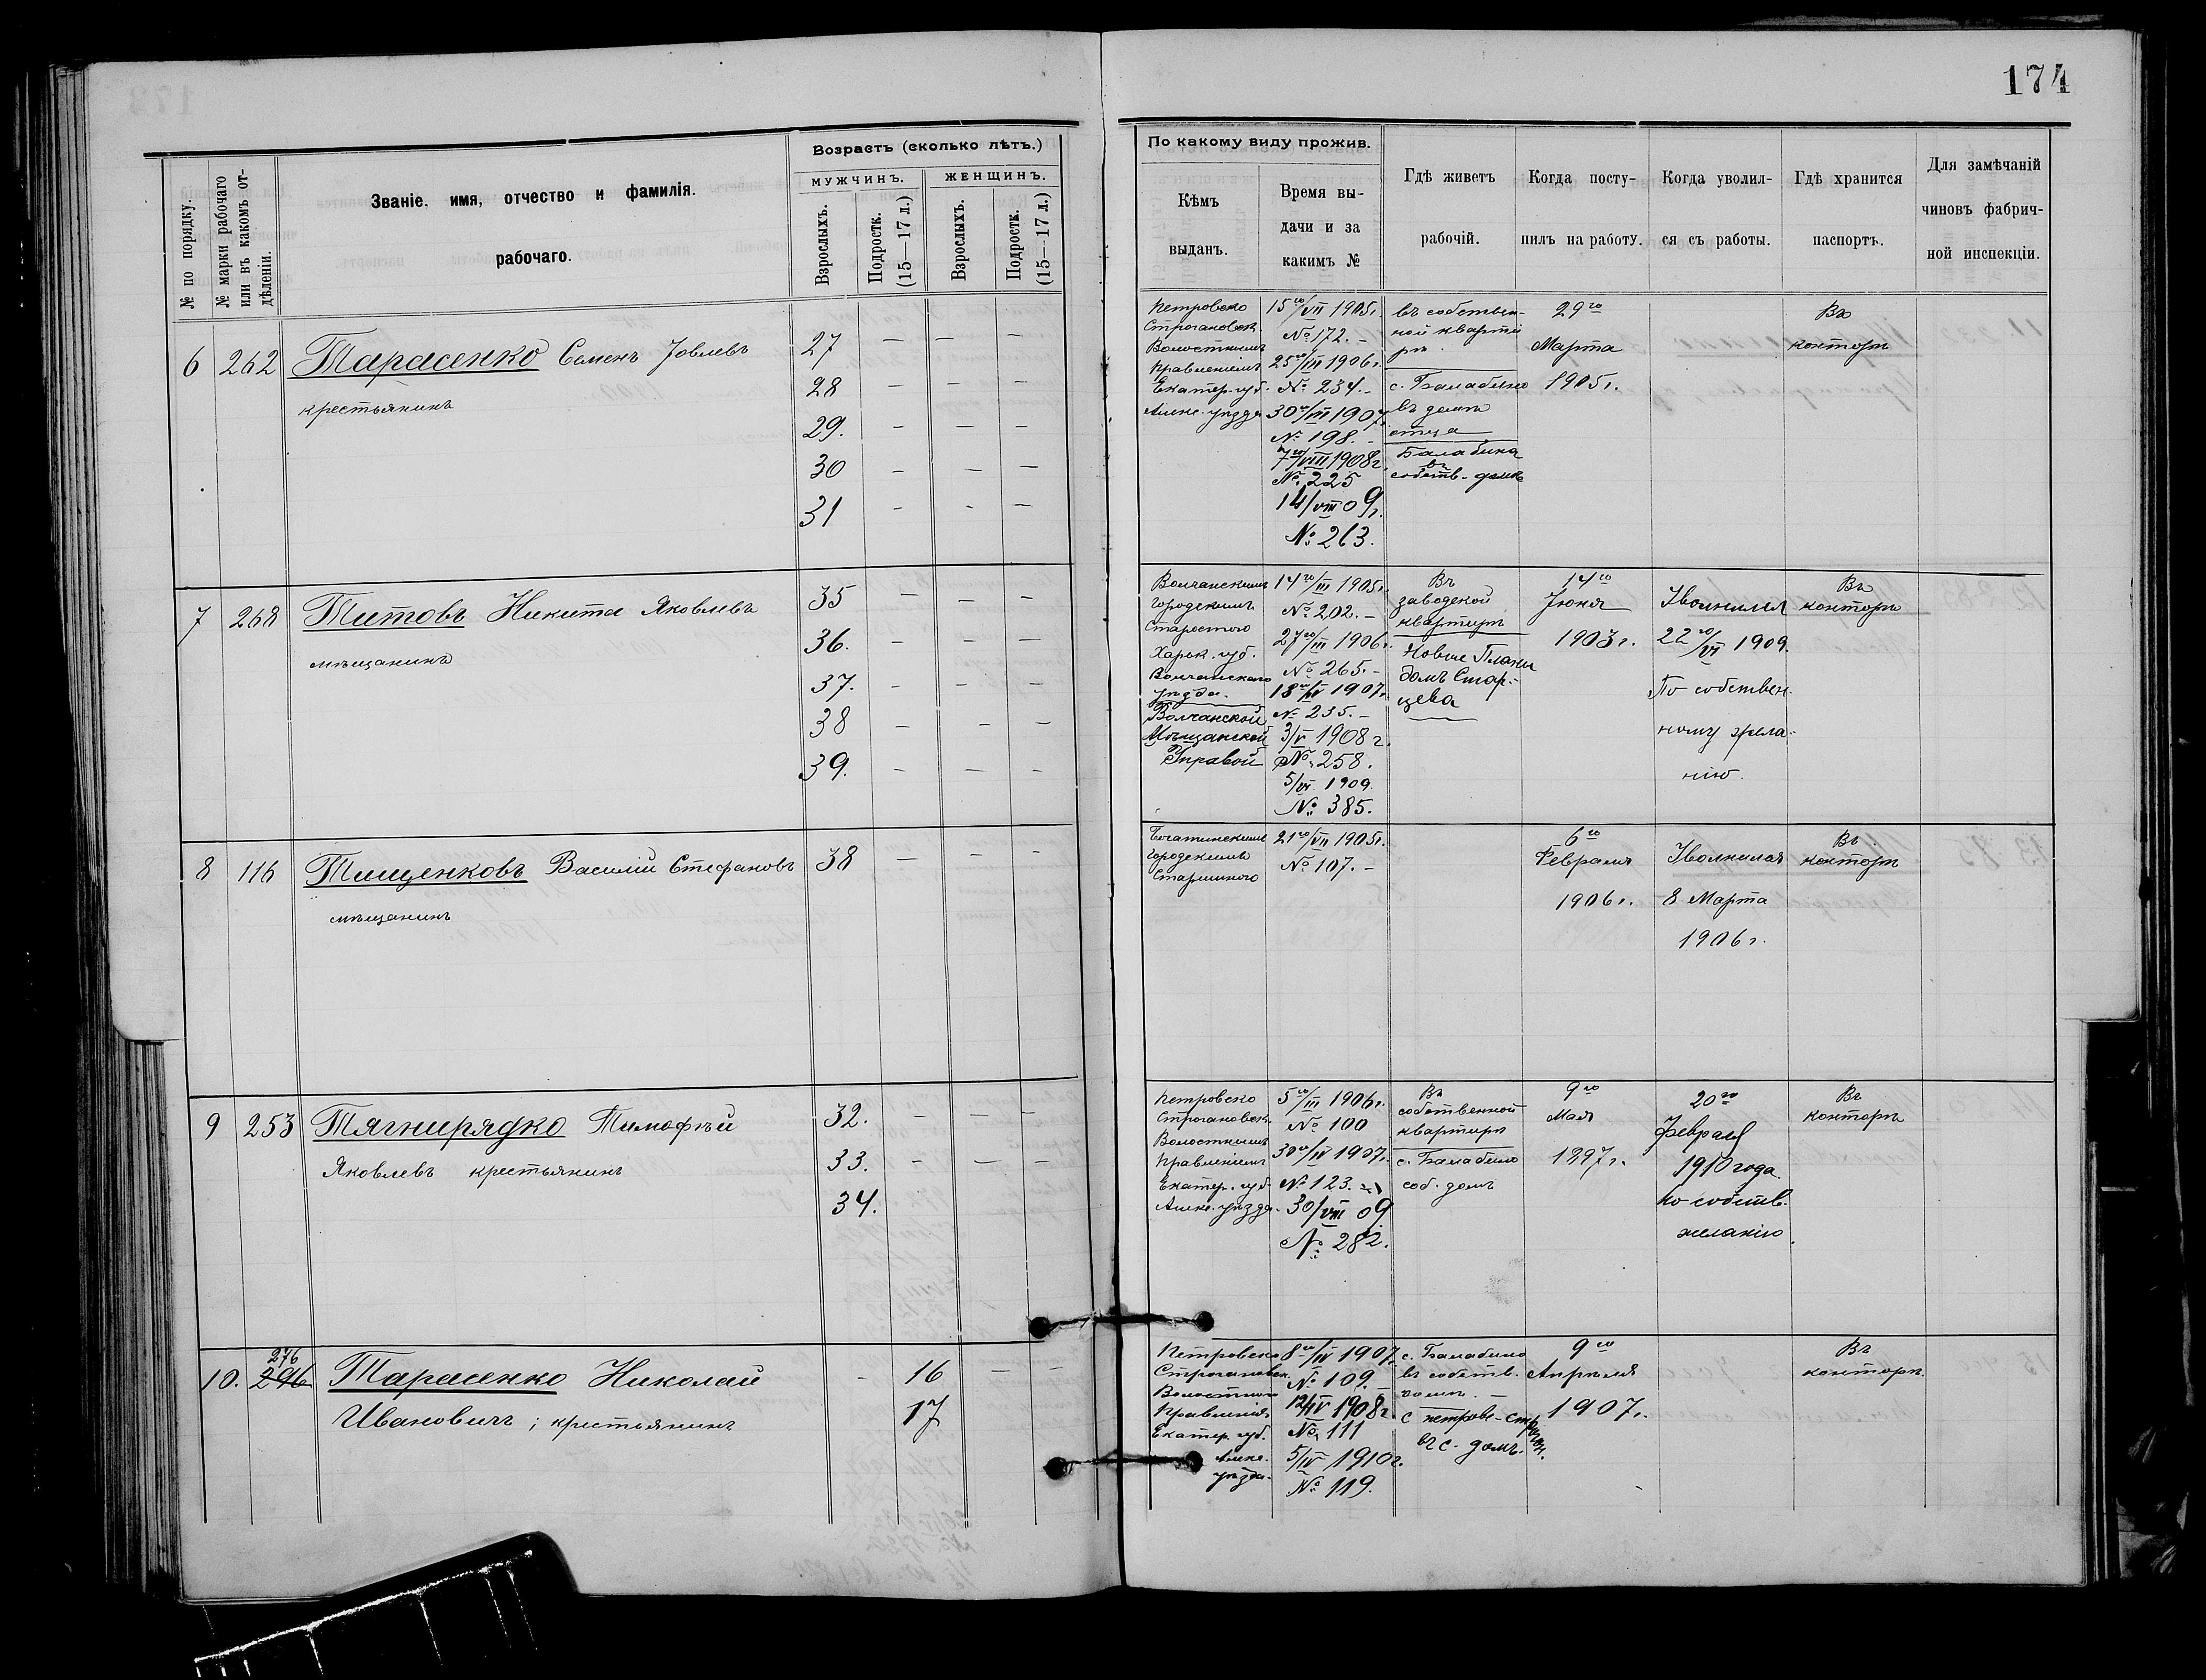 174
№ по порядку.
№ марки рабочаго
или въ какомъ от-
дѣленіи.
Званіе, имя, отчество и фамилія.
рабочаго.
Возрастъ (сколько лѣтъ.)
МУЖЧИНЪ.
ЖЕНЩИНЪ.
Взрослыхъ.
Подростк.
(15—17 л.)
Взрослыхъ.
Подростк.
(15—17 л.)
По какому виду прожив.
Кѣмъ
выданъ.
Время вы-
дачи и за
какимъ №
Гдѣ живетъ
рабочій.
Когда посту-
пилъ на работу.
Когда уволил-
ся съ работы.
Гдѣ хранится
паспортъ.
Для замѣчаній
чиновъ фабрич-
ной инспекціи.
6 262 Тарасенко Семенъ Іовлевъ
крестьянинъ
27 — — —
28 — — —
29. — — —
30 — — —
31 — — —
Петровско
Строгановск.
Волостнымъ
Правленіемъ
Екатер. губ.
Алекс. уѣзда
15го/VII 1905г.
№ 172. —
25го/VII 1906г.
№ 234. —
30го/VII 1907
№ 198. —
7го/VIII 1908г.
№ 225
14/VIII 09г.
№ 263.
въ собствен-
ной кварти
рѣ.
с. Балабино
въ домѣ
отца
Балабина
въ
собств. домѣ
29го
Марта
1905г.
Въ
конторѣ
7 268 Титовъ Никита Яковлевъ
мѣщанинъ
35 — — —
36. — — —
37. — — —
38 — — —
39. — — —
Волчанскимъ
Городскимъ
Старостою
Харьк. губ.
Волчанскаго
уѣзда.
Волчанской
Мѣщанской
Управой
14го/III 1905г.
№ 202. —
27го/III 1906г.
№ 265. —
18го/IV 1907г.
№ 235. —
3/V 1908г.
№ 258.
5/VI 1909.
№ 385.
Въ
заводской
квартирѣ
Новые Планы
домъ Стар-
цева
14го
Іюня
1903г.
Уволился
22го/VI 1909.
По собствен-
ному жела-
нію.
Въ
конторѣ
8 116 Тищенковъ Василій Стефановъ
мѣщанинъ
38 — — —
Городскимъ
21го/VII 1905г.
№ 107. —
6го
Февраля
1906г.
Уволился
8 Марта
1906г.
Въ
конторѣ
9 253 Тягнирядко Тимофѣй
Яковлевъ крестьянинъ
32. — — —
33. — — —
34.
Петровско
Строгановск.
Волостнымъ
Правленіемъ
Екатер. губ.
Алекс. уѣзда.
5го/III 1906г.
№ 100
30го/IV 1907г.
№ 123. —
30/VIII 09
№ 282.
Въ
собственной
квартирѣ
с. Балабино
соб. домъ
9го
Мая
1897г.
20го
Февраля
1910 года.
по собств.
желанію.
Въ
конторѣ
10. 276
296 Тарасенко Николай
Ивановичъ; крестьянинъ
— 16 — —
17
Петровско
Строгановск.
Волостного
Правленія
Екатер. губ.
Алекс.
уѣзда.
8го/IV 1907г.
№ 109. —
12/IV 1908г.
№ 111
5/IV 1910г.
№ 119.
с. Балабино
въ собств.
домѣ. —
с петрово-строган.
въ с. домѣ.
9го
Апрѣля
1907г.
Въ
конторѣ.